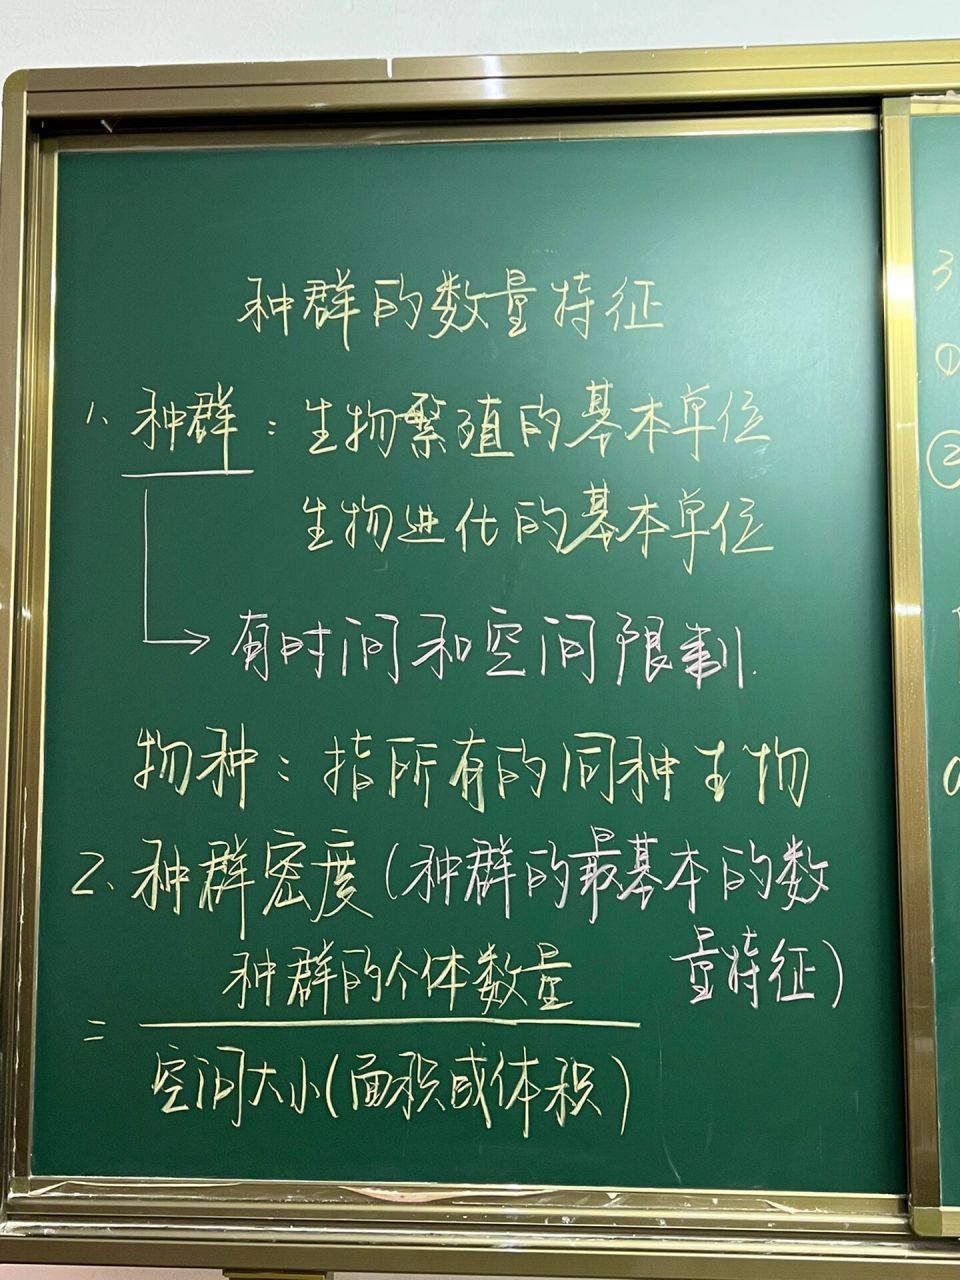 种群的数量特征
1、种群：生物繁殖的基本单位
生物进化的基本单位
有时间和空间限制.
物种：指所有的同种生物
2、种群密度(种群的最基本的数
量特征)
= 种群的个体数量
空间大小(面积或体积)
3
①
②